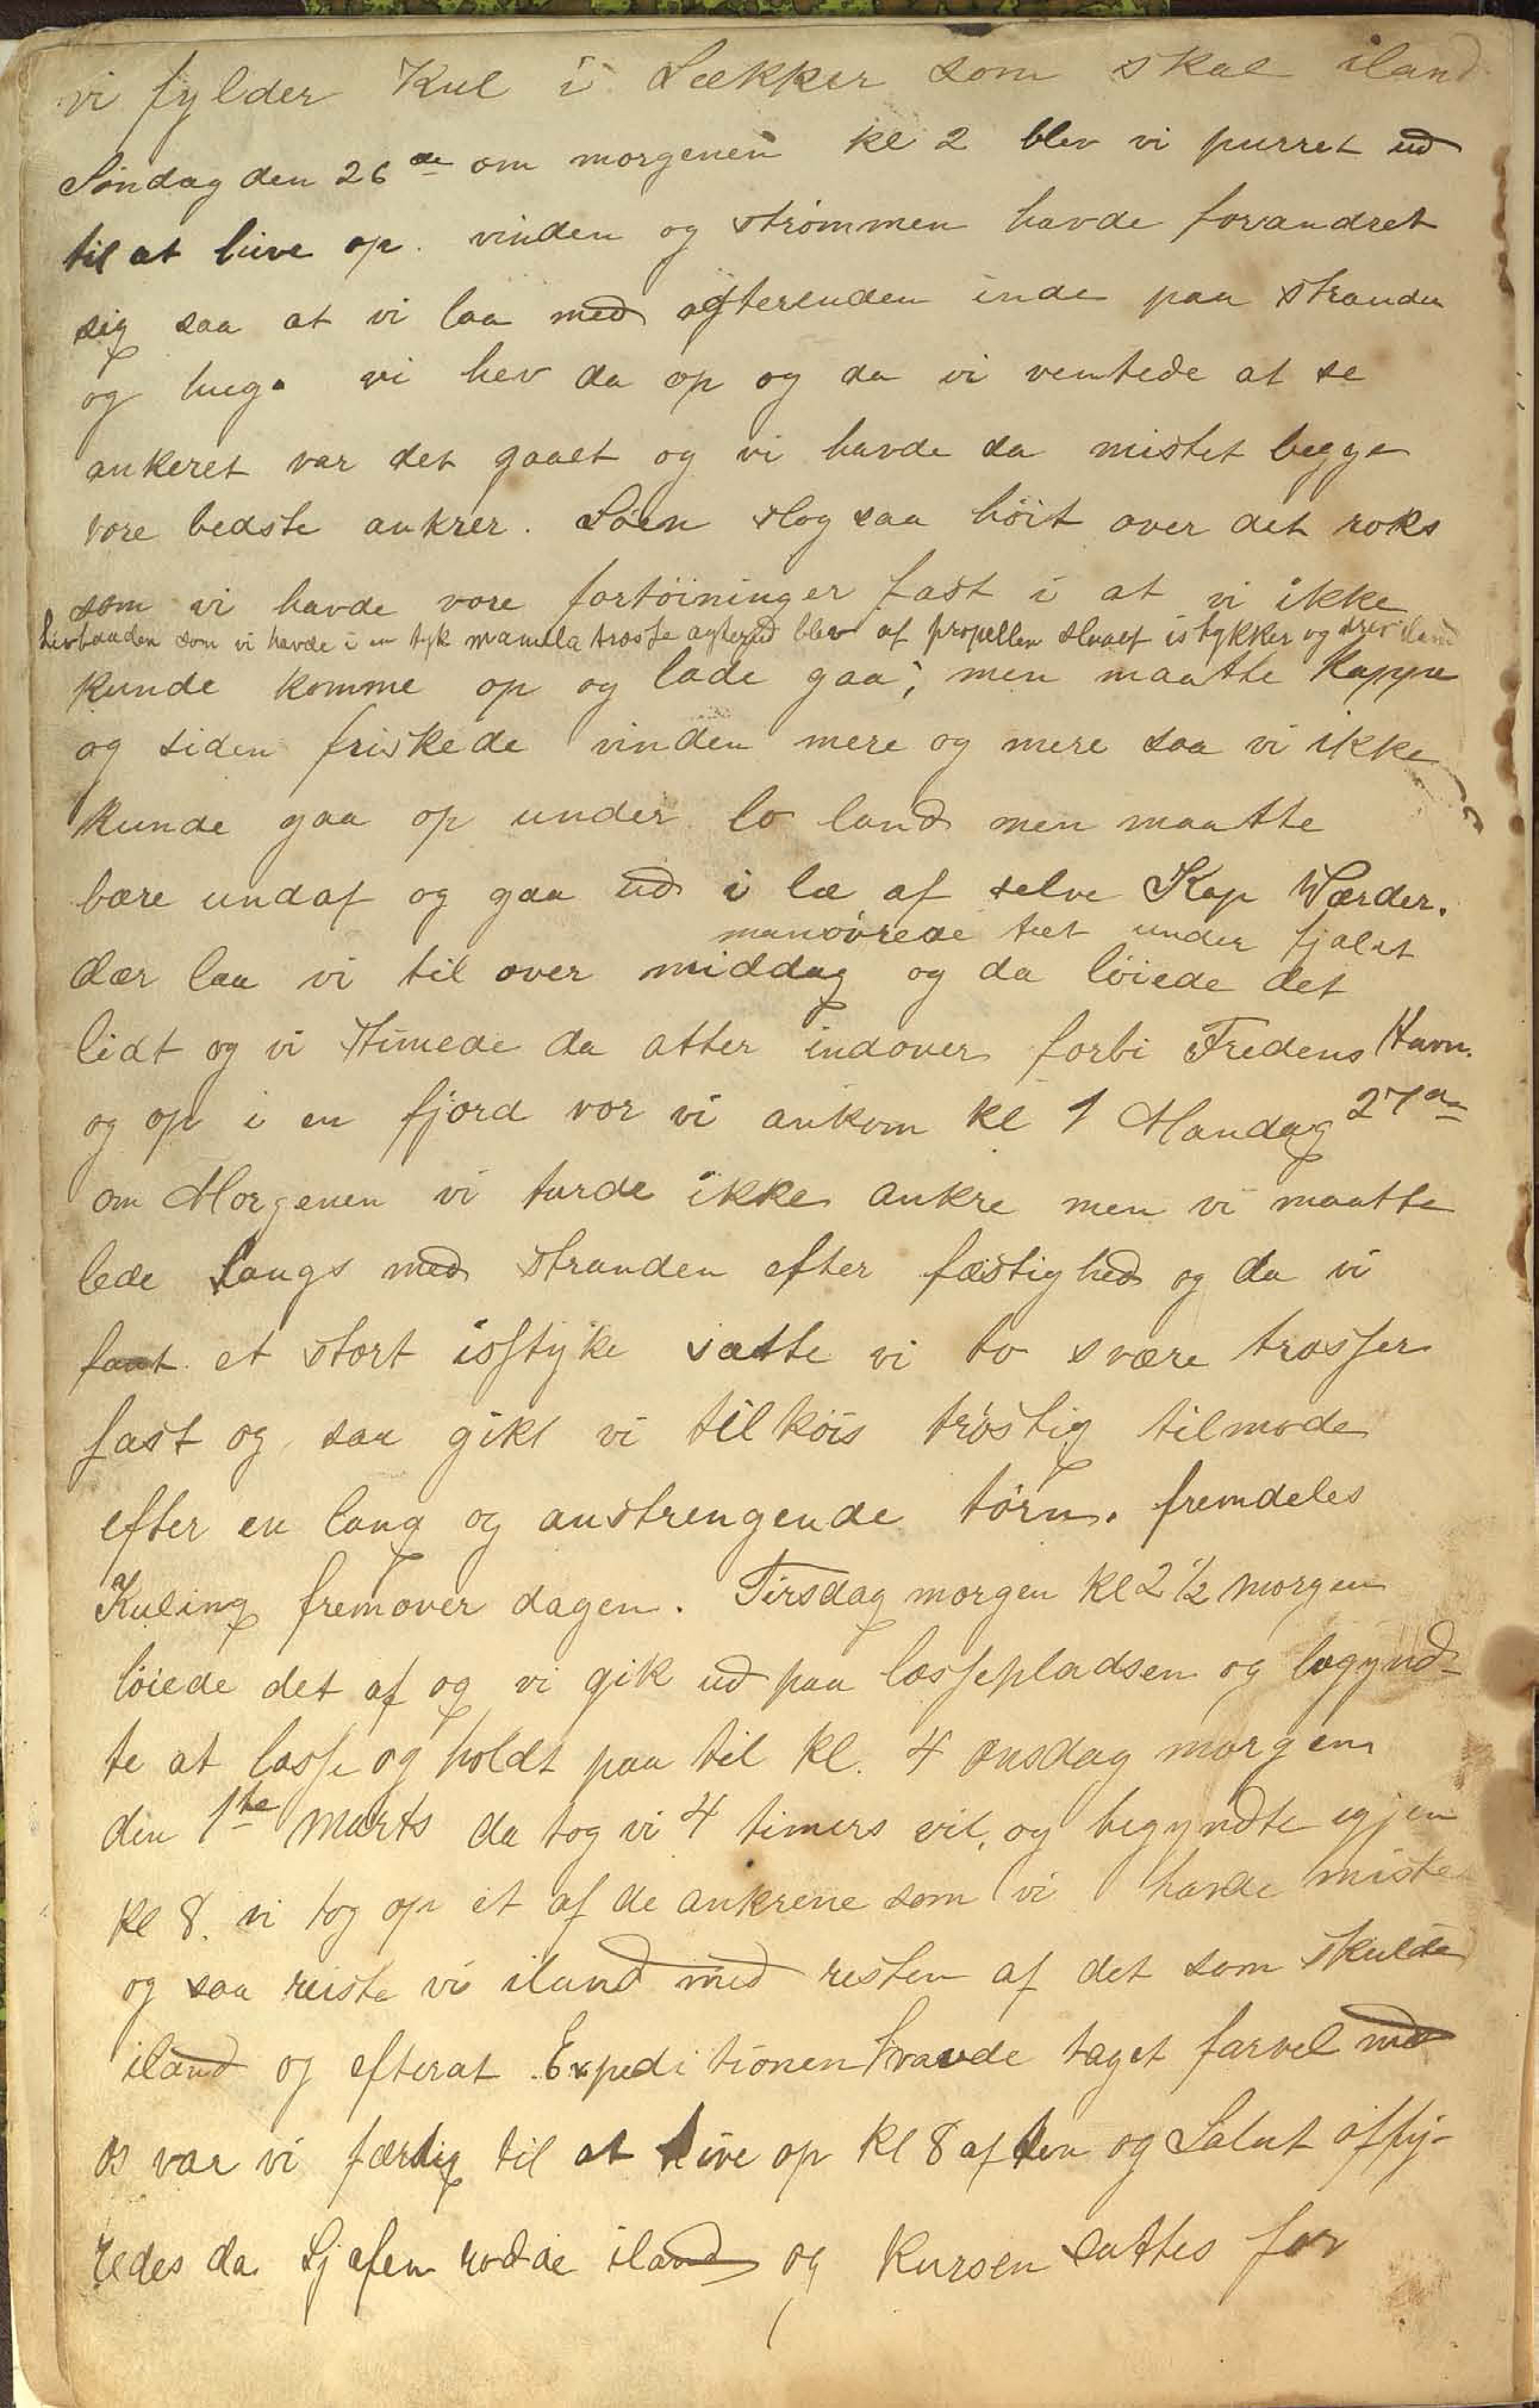 vi fylder Kul i Sækker som skal iland
Söndag den 26de om morgenen kl 2 blev vi purret ud
til at hive op. vinden og strömmen havde forandret
sig saa at vi laa med agterenden inde paa stranden
og hug. vi hev da op og da vi ventede at se
ankeret var det gaaet og vi havde da mistet begge
vore bedste ankrer. Söen slog saa höit over det roks
som vi havde vore fortöininger fast i at vi ikke
Livbaaden som vi havde i en tyk manilla trosse agterud blev af propellen slaaet istykker og drev iland
kunde komme op og lade gaa; men maatte Kappe
og siden friskede vinden mere og mere saa vi ikke
kunde gaa op under lo land men maatte
bære undaf og gaa ud i læ af selve Kap Wærder.
manövrede tæt under fjælet
dær laa vi til over middag og da löiede det
lidt og vi stimede da atter indover forbi Fredens Havn.
og op i en fjord vor vi ankom kl 1 Mandag 27de
om Morgenen vi turde ikke ankre men vi maatte
lede langs med stranden efter fæstighed og da vi
fant et stort isstyke satte vi to svære trosser
fast og saa gikt vi tilköis tröstig tilmode
efter en lang og anstrengende törn. fremdeles
Kuling fremover dagen. Tirsdag morgen Kl 2 1/2 morgen
löiede det af og vi gik ud paa lossepladsen og begynd-
te at losse og holdt paa til kl. 4 onsdag morgen
den 1te Marts da tog vi 4 timers vil, og begyndte igjen
Kl 8. vi tog op et af de ankrene som vi havde miste
og saa reiste vi iland med resten af det som skulde
iland og efterat Expeditionen havde taget farvel med
os var vi færdig til at hive op Kl 8 aften og Salut affy-
redes da Sjefen rodde iland og Kursen sattes for